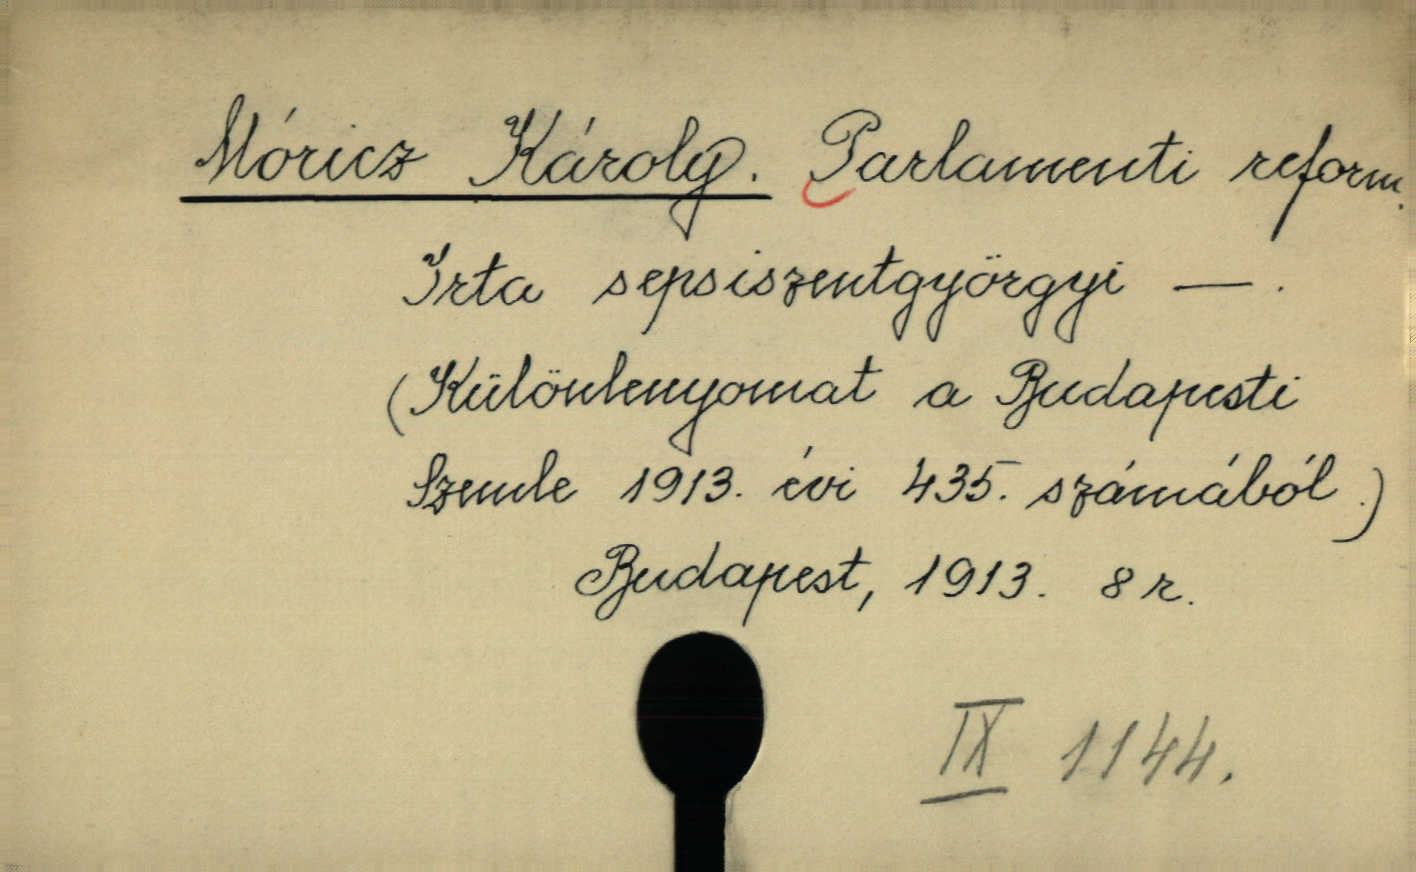 Móricz Károly. Parlamenti reform.
Irta sepsiszentgyörgyi — .
(Különlenyomat a Budapesti
Szemle 1913. évi 435. számából.)
Budapest, 1913. 8 r.
IX 1144.